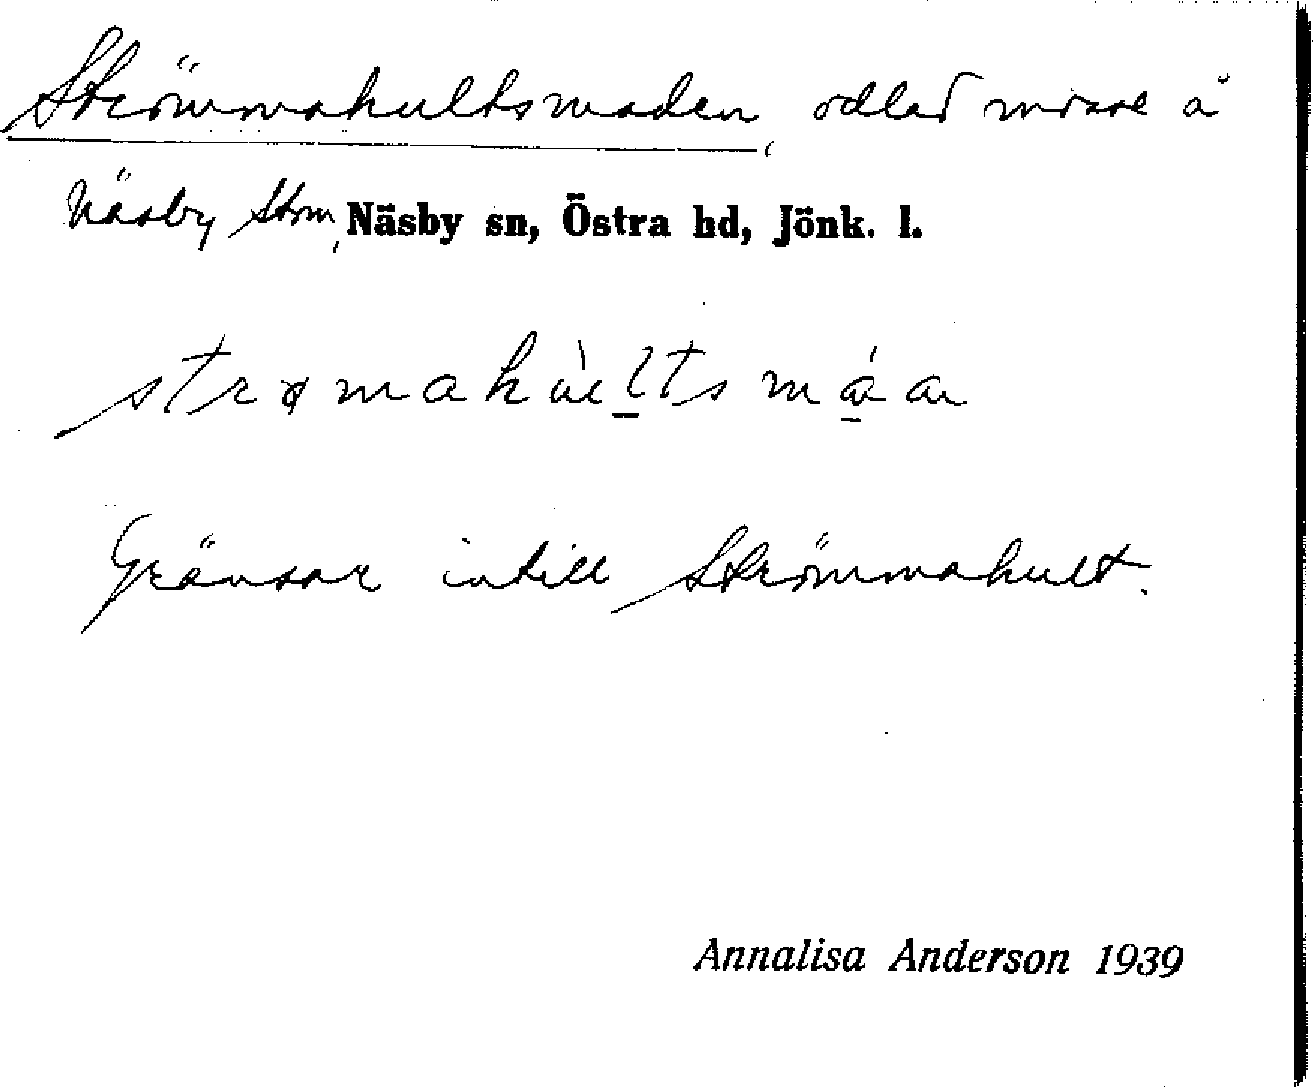 Strömmahultsmaden, odlad mosse å
Näsby Strm, Näsby sn, Östra hd, Jönk. l.
strømahùltsmáa
Gränsar intill Strömmahult.
Annalisa Anderson 1939